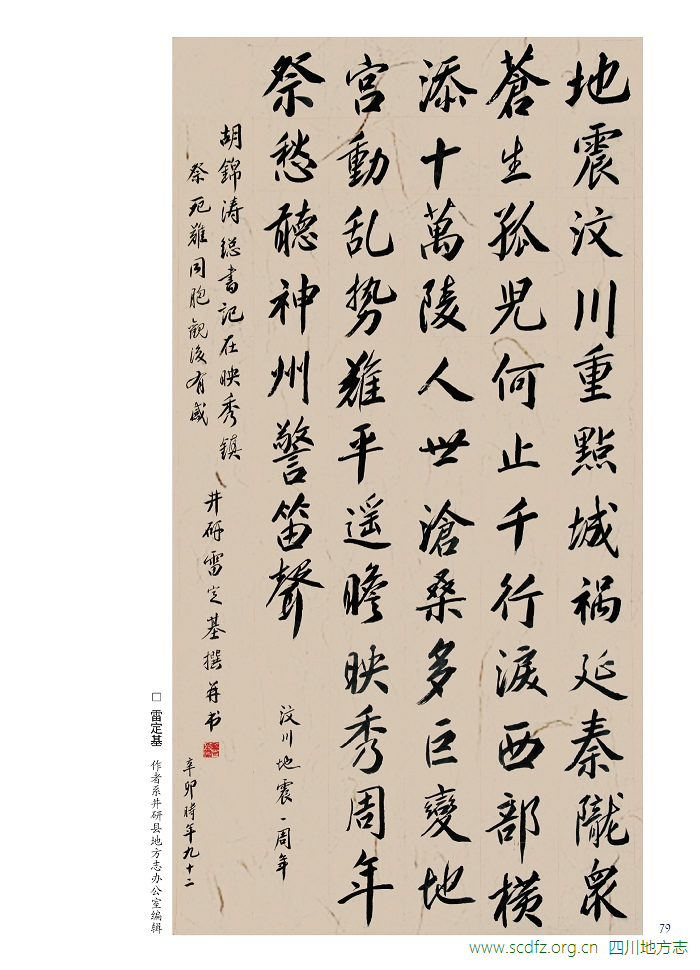 地震汶川重點城祸延秦隴眾
蒼生孤児何止千行淚西部横
添十萬陵人世滄桑多巨變地
宫動乱势難平遥瞻映秀周年
祭愁聽神州警笛聲
汶川地震一周年
胡錦涛总書記在映秀鎮
祭死難同胞觀後有感
井研雷定基撰并书
辛卯時年九十二
□ 雷定基 作者系井研县地方志办公室编辑
79
www.scdfz.org.cn 四川地方志